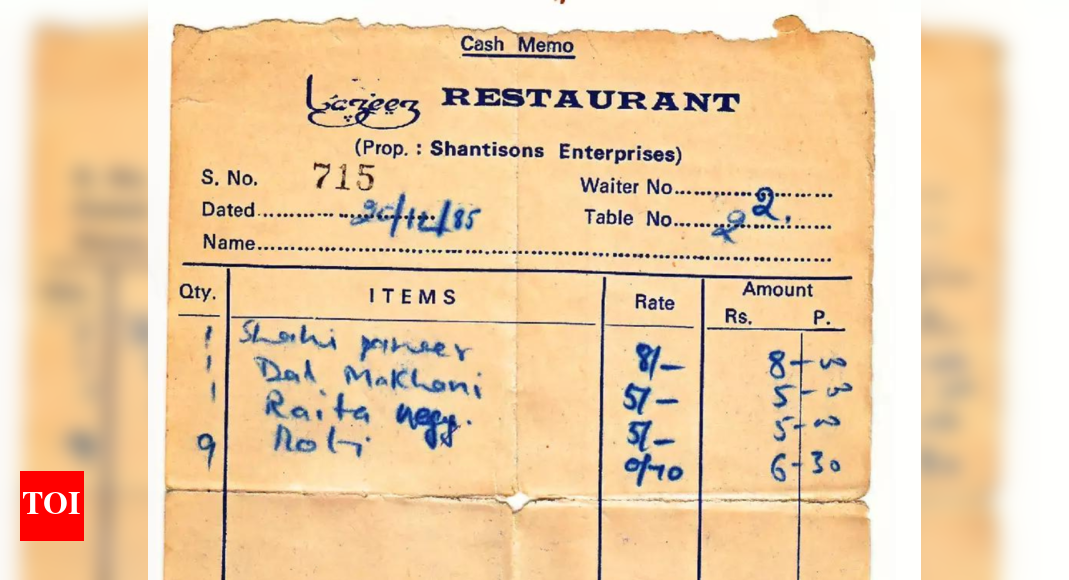 Cash Memo
Lazeez RESTAURANT
(Prop. : Shantisons Enterprises)
S. No. 715
Waiter No. 2.
Dated 20/12/85
Table No. 2
Name
Qty. ITEMS Rate Amount
Rs. P.
1 Shahi paneer 8/- 8-00
1 Dal Makhani 5/- 5-00
1 Raita vegg. 5/- 5-00
9 Roti 0/70 6-30
TOI